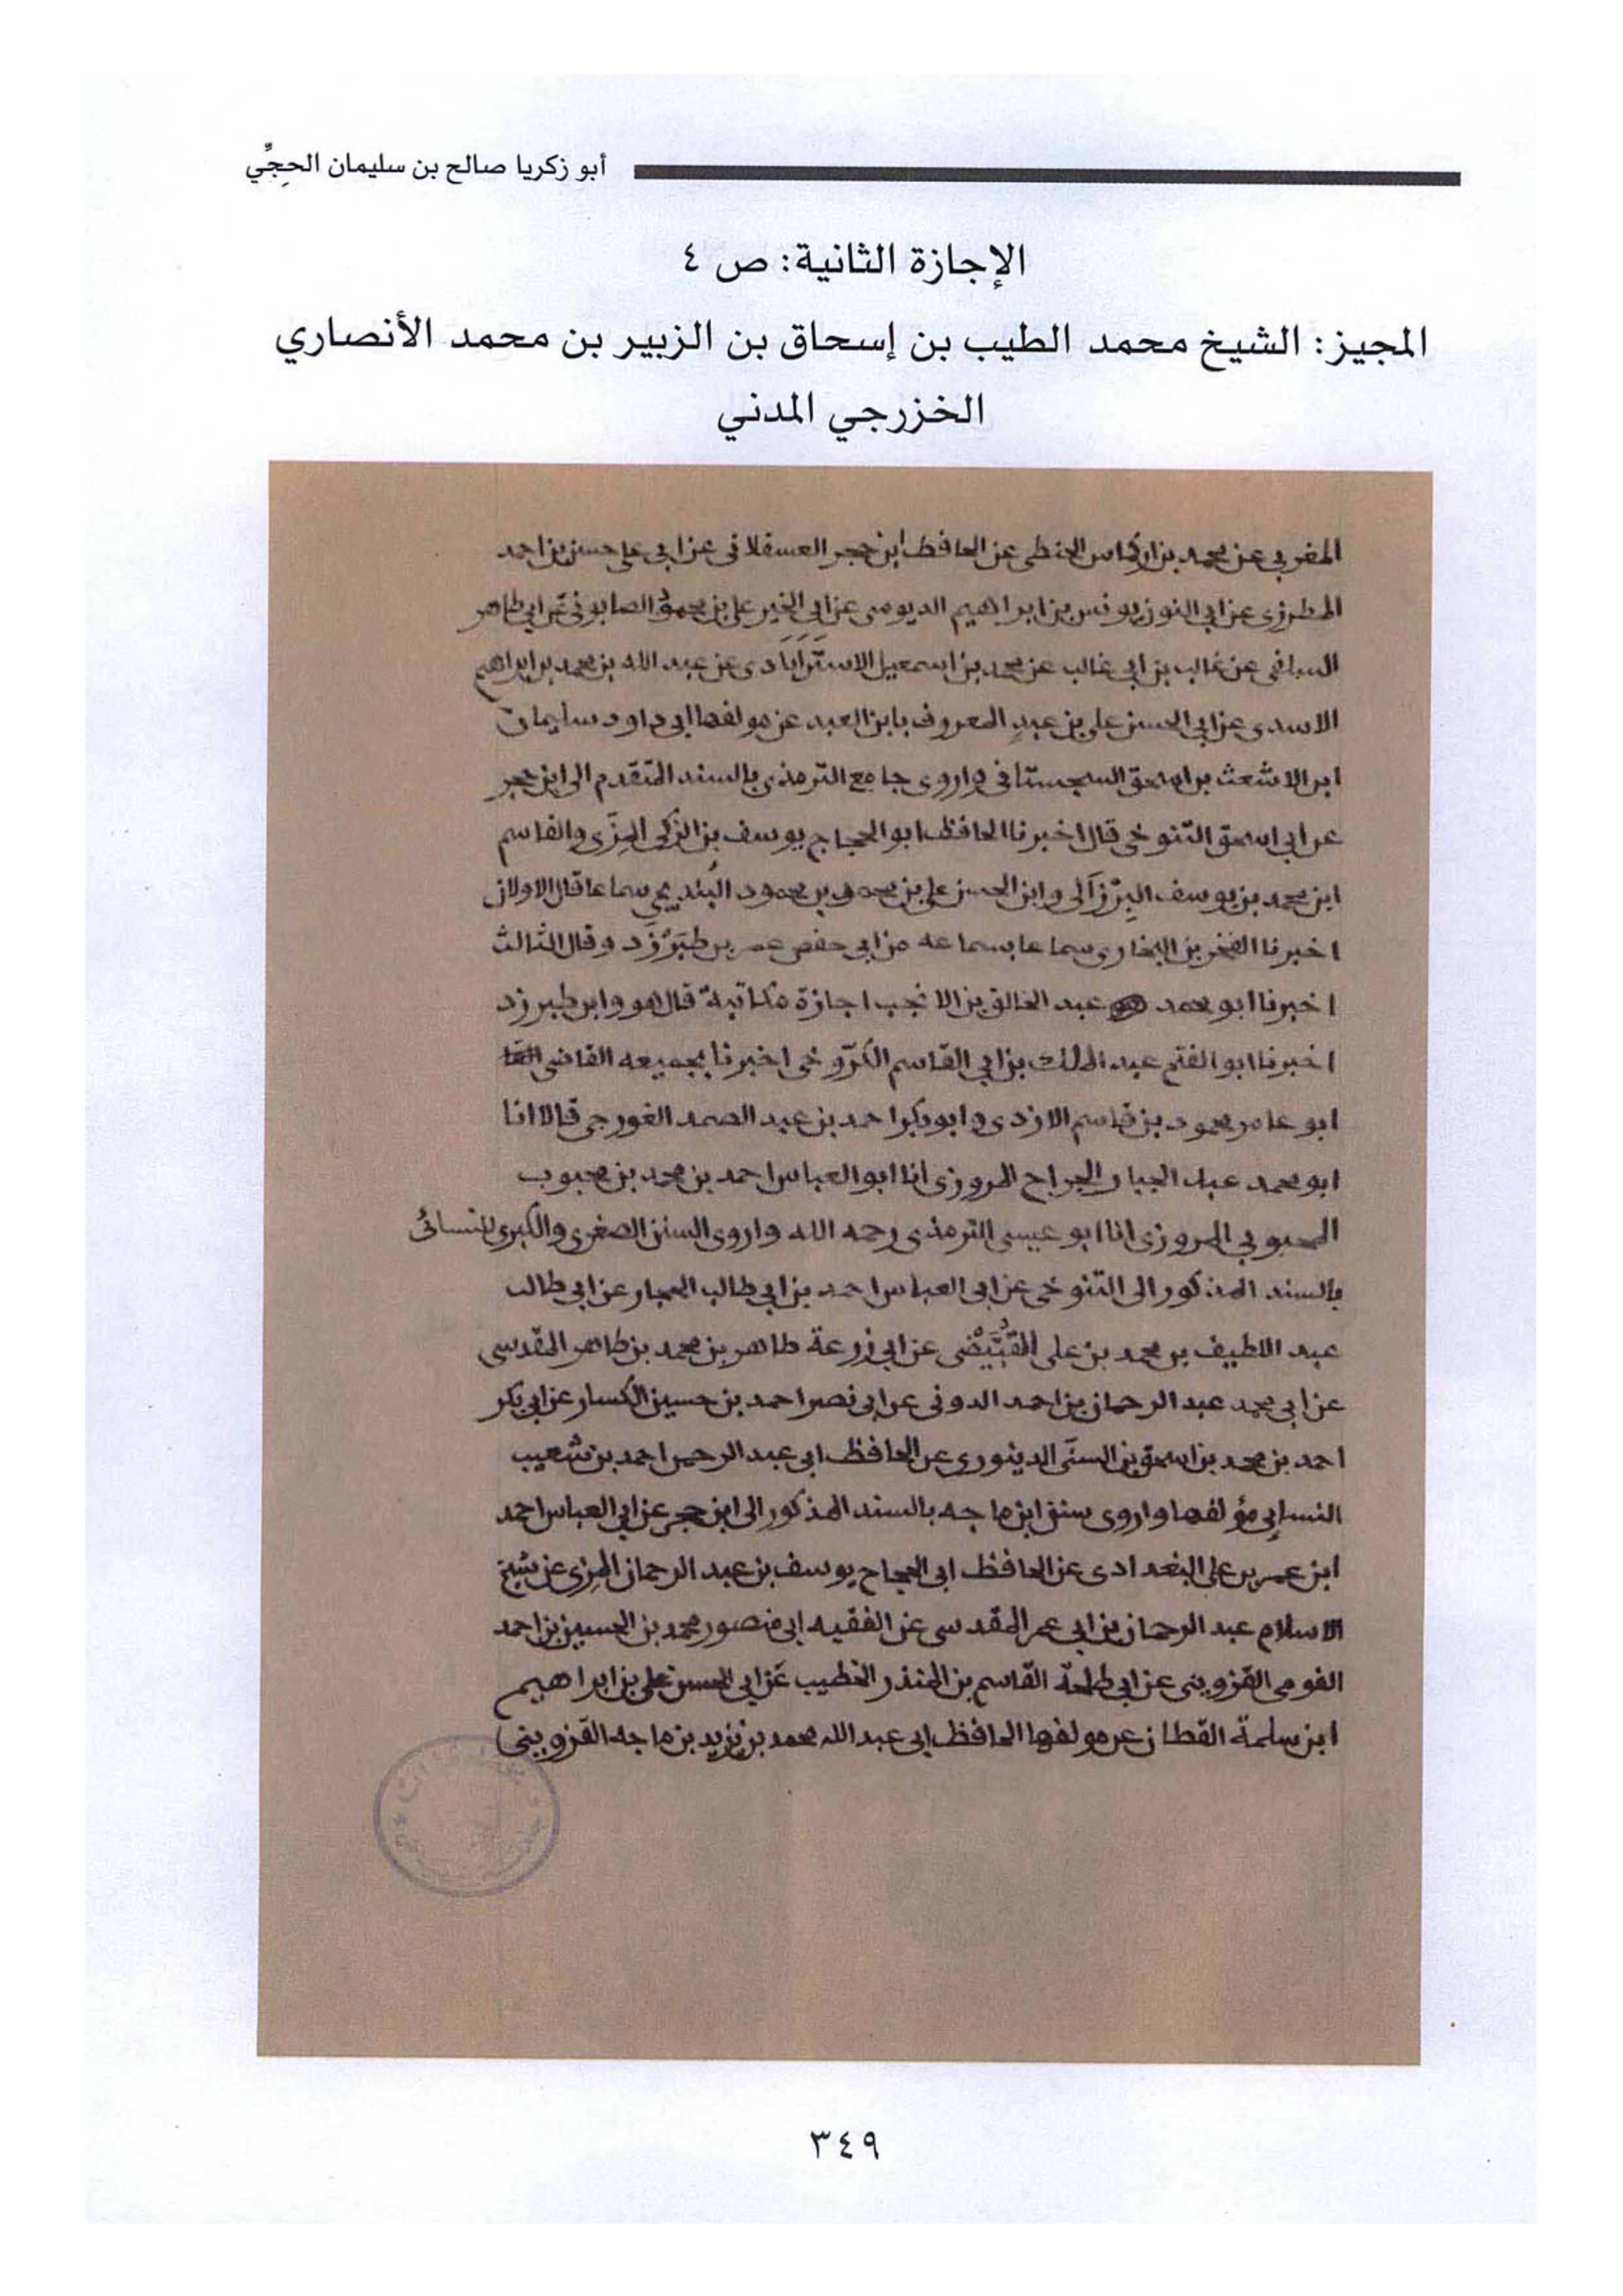 أبو زكريا صالح بن سليمان الحجِّي
الإجازة الثانية: ص ٤
المجيز: الشيخ محمد الطيب بن إسحاق بن الزبير بن محمد الأنصاري
الخزرجي المدني
المغربي عن محمد بن اركماس الحنفي عن الحافظ ابن حجر العسقلاني عن ابي علي حسن بن احمد
المطرزي عن ابي النون يونس بن ابراهيم الدبوسي عن ابي الخير علي بن محمود الصابوني عن ابي طاهر
السلفي عن غالب بن ابي غالب عن محمد بن اسمعيل الاستَرَابَادي عن عبد الله بن محمد بن ابراهيم
الاسدي عن ابي الحسن علي بن عبدٍ المعروف بابن العبد عن مولفها ابي داود سليمان
ابن الاشعث بن اسحق السجستاني واروي جامع الترمذي بالسند المتقدم الى ابن حجر
عن ابي اسحق التنوخي قال اخبرنا الحافظ ابو الحجاج يوسف بن الزكي المِزّي والقاسم
ابن محمد بن يوسف البِرْزَالي وابن الحسن علي بن محمد بن محمود البُندنيجي سماعا قال الاولان
اخبرنا الفخر بن البخاري سماعا بسماعه من ابي حفص عمر بن طبَرْزَد وقال الثالث
اخبرنا ابو محمد عبد الخالق بن الانجب اجازة مكاتبة قال هو وابن طبرزد
اخبرنا ابو الفتح عبد الملك بن ابي القاسم الكَرّوخي اخبرنا بجميعه القاضي
ابو عامر محمود بن قاسم الازدي وابو بكر احمد بن عبد الصمد الغورجي قالا انا
ابو محمد عبد الجبار الجراح المروزي انا ابو العباس احمد بن محمد بن محبوب
المحبوبي المروزي انا ابو عيسى الترمذي رحمه الله واروي السنن الصغرى والكبرى للنسائي
بالسند المذكور الى التنوخي عن ابي العباس احمد بن ابي طالب الحجار عن ابي طالب
عبد اللطيف بن محمد بن علي القُبَّيْضي عن ابي زرعة طاهر بن محمد بن طاهر المقدسي
عن ابي محمد عبد الرحمان بن احمد الدوني عن ابي نصر احمد بن حسين الكسار عن ابي بكر
احمد بن محمد بن اسحق بن السنّي الدينوري عن الحافظ ابي عبد الرحمن احمد بن شعيب
النسايي مؤلفها واروي سنن ابن ماجه بالسند المذكور الى ابن حجر عن ابي العباس احمد
ابن عمر بن علي البغدادي عن الحافظ ابي الحجاج يوسف بن عبد الرحمان المِزي عن شيخ
الاسلام عبد الرحمان بن ابي عمر المقدسي عن الفقيه ابي منصور محمد بن الحسين بن احمد
القومي القزويني عن ابي طلحة القاسم بن المنذر الخطيب عن ابي الحسن علي بن ابراهيم
ابن سلمة القطان عن مولفها الحافظ ابي عبد الله محمد بن يزيد بن ماجه القزويني
٣٤٩